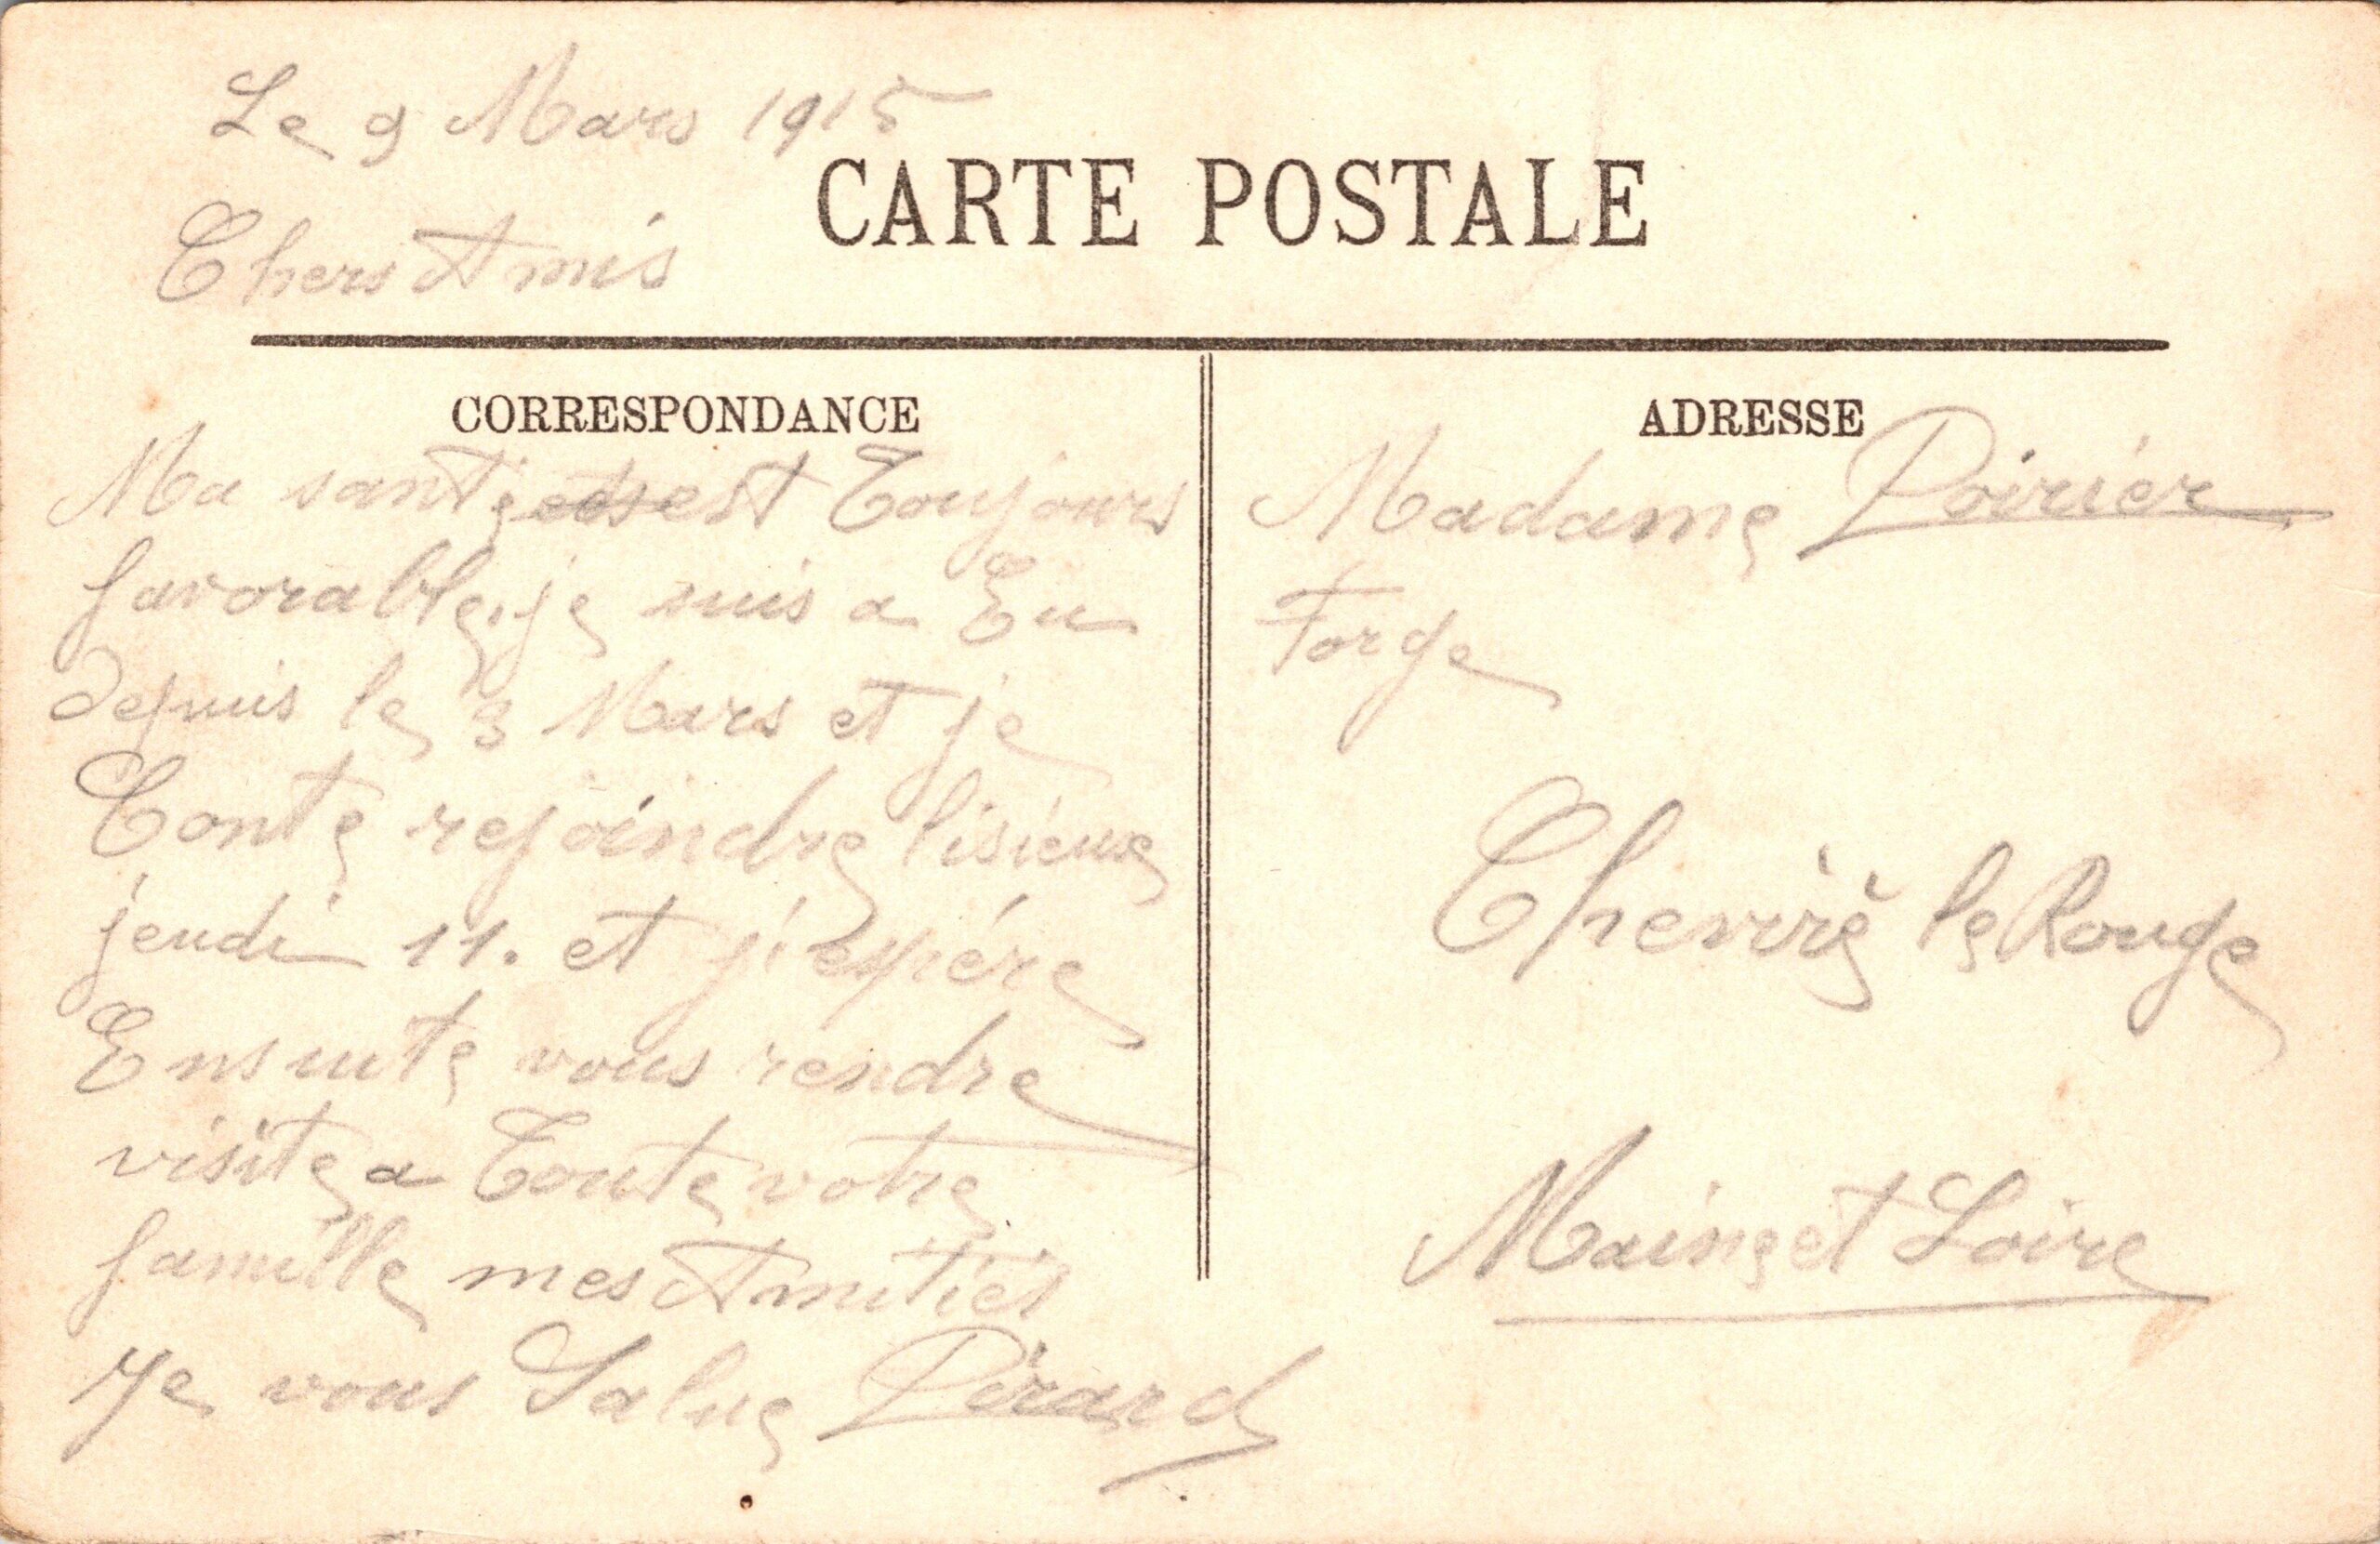 Le 9 Mars 1915
CARTE POSTALE
Chers Amis
CORRESPONDANCE
Ma santé est Toujours
favorable, je suis a Eu
depuis le 3 Mars et je
Conte rejoindre lisieuse
jeudi 11. et j'éspére
Ensuite vous rendre
visite a Toute votre
famille mes Amitiés
Je vous Salue Pirard
ADRESSE
Madame Poirier
Forge
Cheviré le Rouge
Maine et Loire